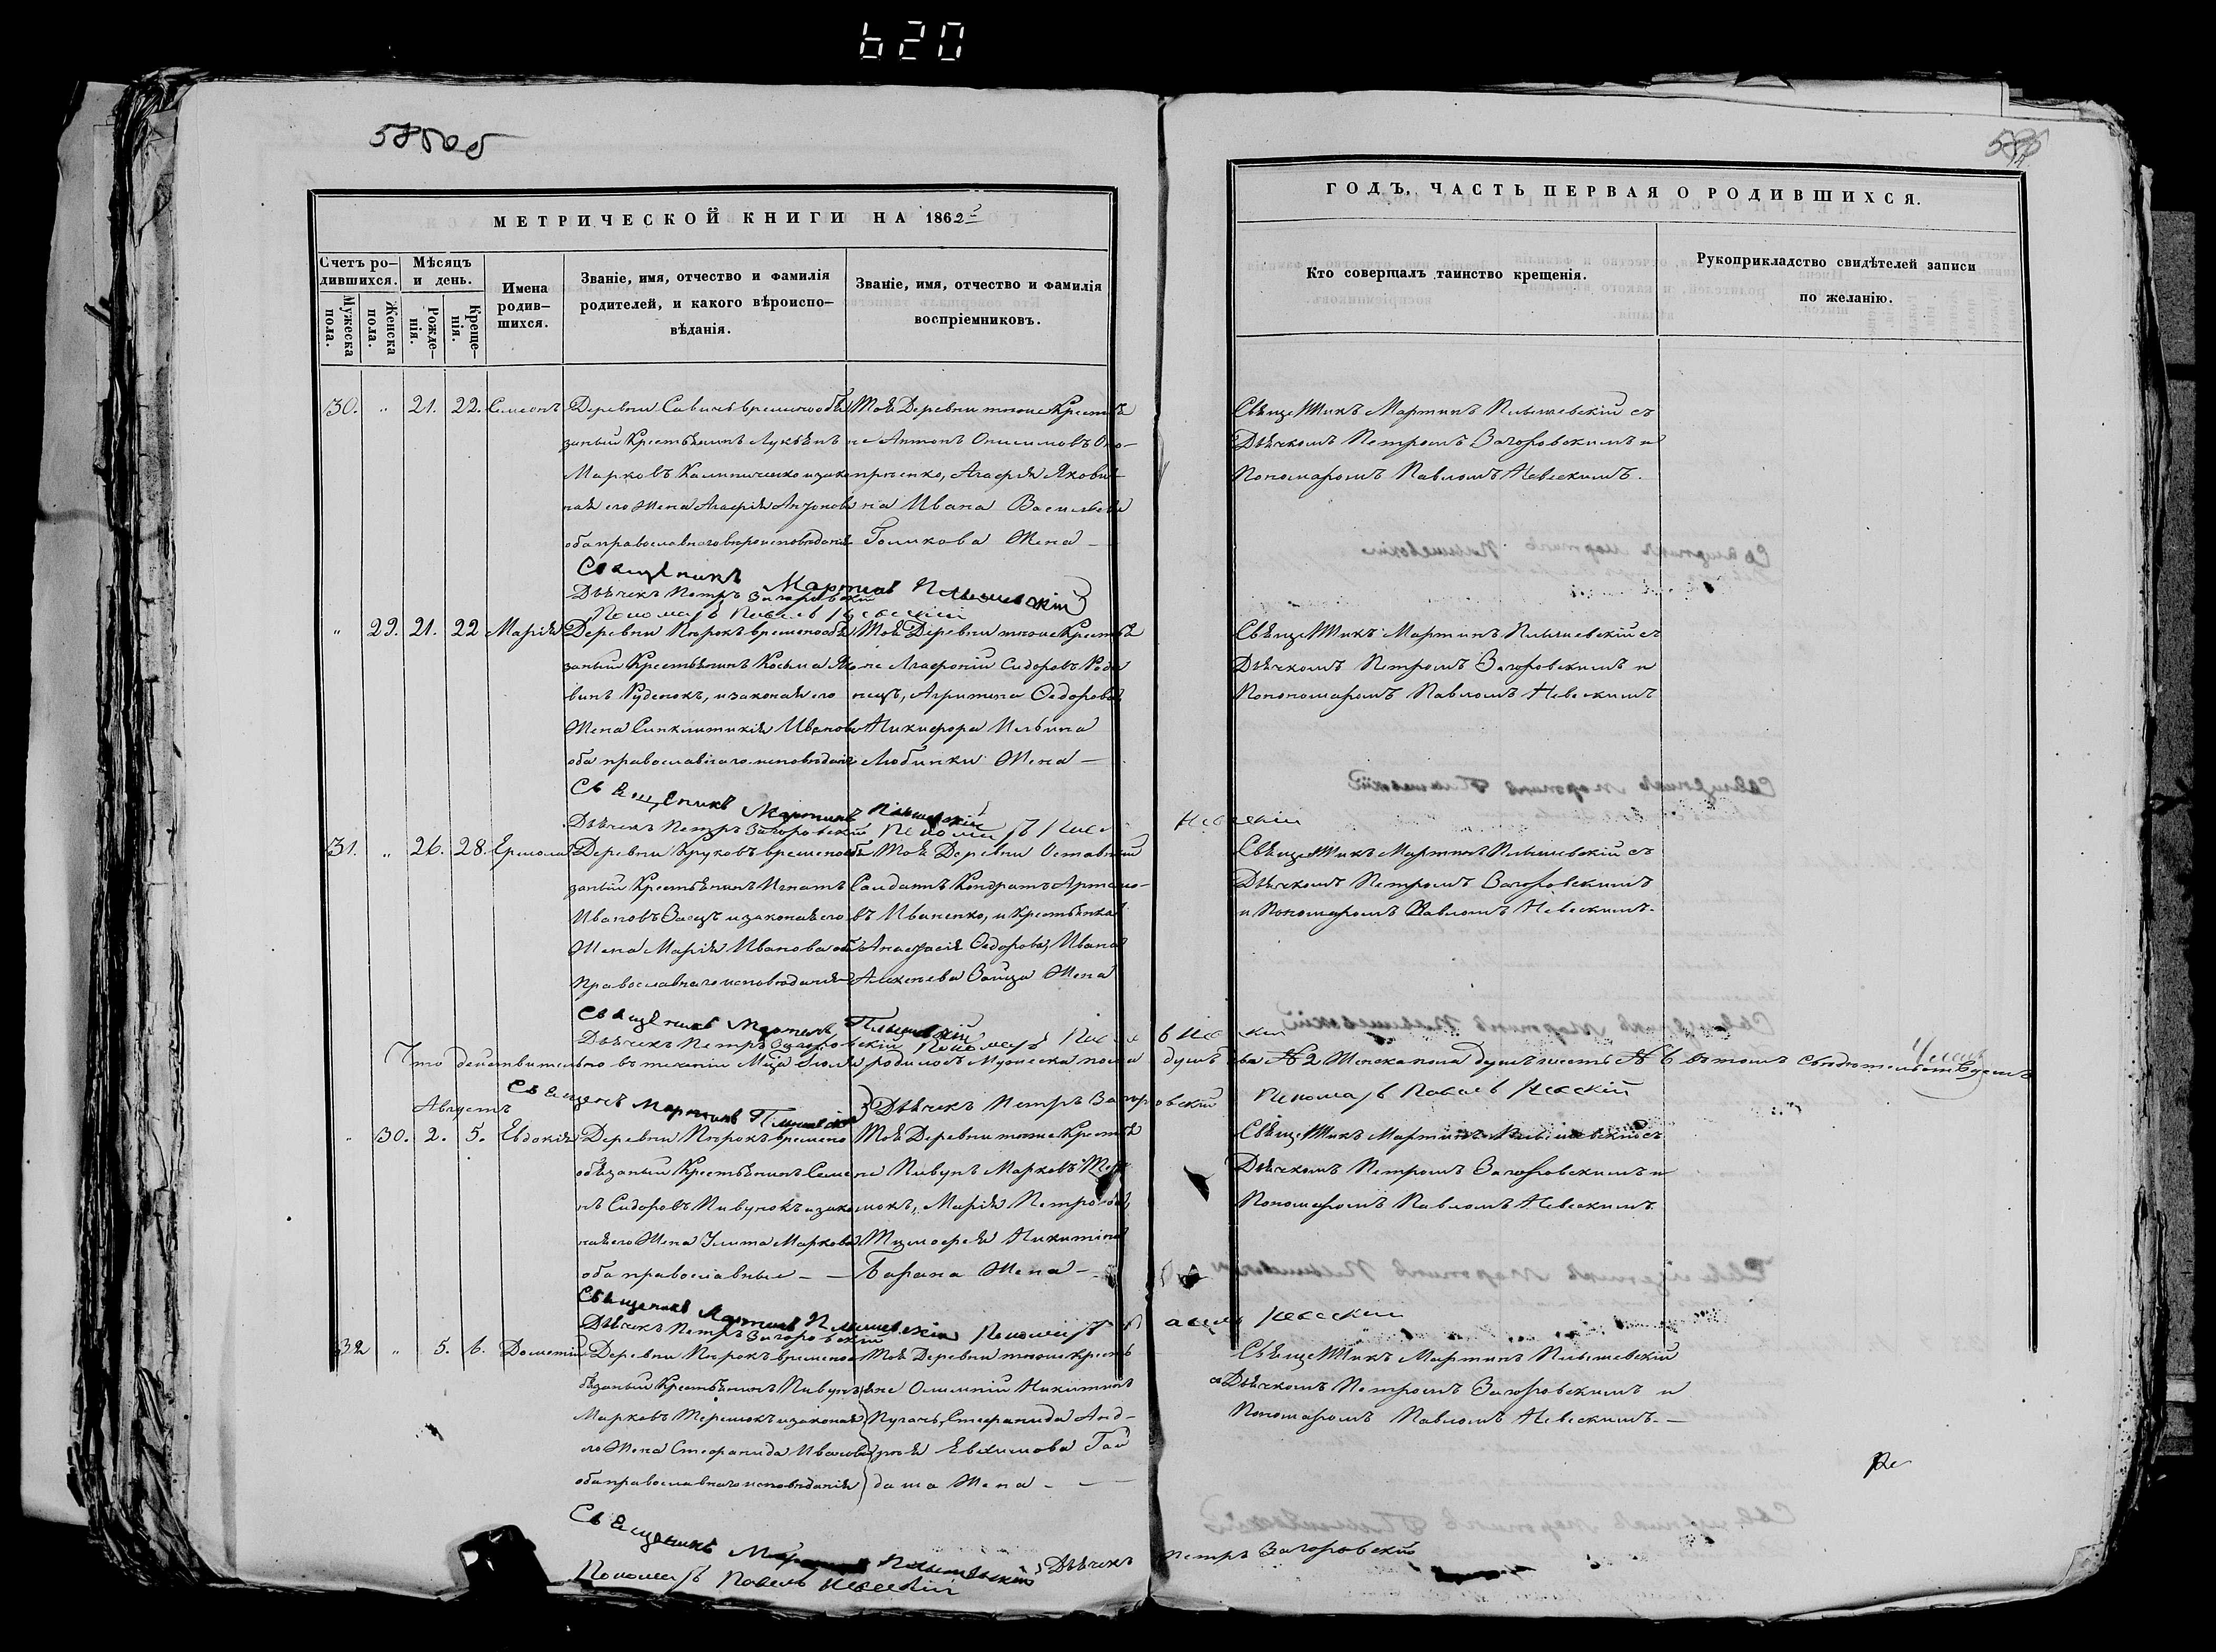 620
585об
585
МЕТРИЧЕСКОЙ КНИГИ НА 1862
ГОДЪ, ЧАСТЬ ПЕРВАЯ О РОДИВШИХСЯ.
Счетъ ро-
дившихся.
Мужеска
пола.
Женска
пола.
Мѣсяцъ
и день.
Рожде-
нія.
Креще-
нія.
Имена
родив-
шихся.
Званіе, имя, отчество и фамилія
родителей, и какого вѣроиспо-
вѣданія.
Званіе, имя, отчество и фамилія
воспріемниковъ.
Кто совершалъ таинство крещенія.
Рукоприкладство свидѣтелей записи
по желанію.
30. " 21. 22. Симеонъ
Деревни временнообя
занный Крестьянинъ
Марковъ Калиниченко и закон
ная его Жена Агафія Антонов
оба православнаго вѣроисповѣданія
Той Деревни тоже Крестья
не Антонъ Онисимовъ Оно-
прѣенко, Агафія Яковл
на Ивана Васильева
Голикова Жена
Священникъ Мартинъ съ
Дьячкомъ Петромъ Загоровскимъ и
Пономаромъ Павломъ Невскимъ.
Священникъ Мартинъ
Дьячекъ Петръ Загоровскій
Пономарь Павелъ Невскій
" 29. 21. 22 Марія
Деревни Пюрокъ временнообя
занный Крестьянинъ Косьма Яко
вивъ Руденокъ, и законая его
Жена Синклитикія Иванова
оба православнаго исповѣданія
Той Деревни тоже Крестья
не Агафоній Сидоровъ
Агрипина Ѳедорова
Никифора Ильина
Жена
Священникъ Мартинъ съ
Дьячкомъ Петромъ Загоровскимъ и
Попономаромъ Павломъ Невскимъ
Священникъ Мартинъ
Дьячекъ Петръ Загоровскій Пономарь Павелъ Невскій
31. " 26. 28. Ермолай
Деревни Круковъ временнообя
занный Крестьянинъ Игнатъ
Ивановъ Заецъ и законая его
Жена Марія Иванова оба
Православнаго исповѣданія
Той Деревни Отставный
Салдатъ Кондратъ Артемо-
въ Иваненко, и Крестьянка
Анастасія Ѳедорова, Ивана
Алексѣева Зайца Жена
Священникъ Мартинъ съ
Дьячкомъ Петромъ Загоровскимъ
и Пономаромъ Павломъ Невскимъ.
Священникъ Мартинъ
Дьячекъ Петръ Загоровскій Пономарь Павелъ Невскій
Что дѣйствительно въ теченіи Мца Іюля родилось Мужеска пола душъ два № 2 Женска пола душъ шесть № 6 въ томъ
Священникъ Мартинъ Дьячекъ Петръ Загоровскій Пономарь Павелъ Невскій
Августъ
" 30. 2. 5. Евдокія
Деревни Пюрокъ временно
обязаный Крестьянинъ Семе
нъ Сидоровъ Пивунокъ и зако
ная его Жена Улита Маркова
оба православные
Той Деревни тоже Крестья
не Пивунъ Марковъ Тере
мокъ, Марія Петрова,
Тимофея Никитина
Барана Жена
Священникъ Мартинъ съ
Дьячкомъ Петромъ Загоровскимъ и
Пономаромъ Павломъ Невскимъ.
Священникъ Мартинъ
Дьячекъ Петръ Загоровскій Пономарь Павелъ Невскій
32 " 5. 6. Дометій
Деревни Пюрокъ временноо
бязаный Крестьянинъ Пивунъ
Марковъ Теремокъ и законая
его Жена Стефанида Иванова
оба православнаго исповѣданія
Той Деревни тоже крестья
не Олимпій Никитинъ
Пугачъ, Стефанида Анд-
рея Евхимова Гай
даша Жена
Священникъ Мартинъ
съ Дьячкомъ Петромъ Загоровскимъ и
Пономаромъ Павломъ Невскимъ.
Священникъ Мартинъ Дьячекъ Петръ Загоровскій
Пономарь Павелъ Невскій